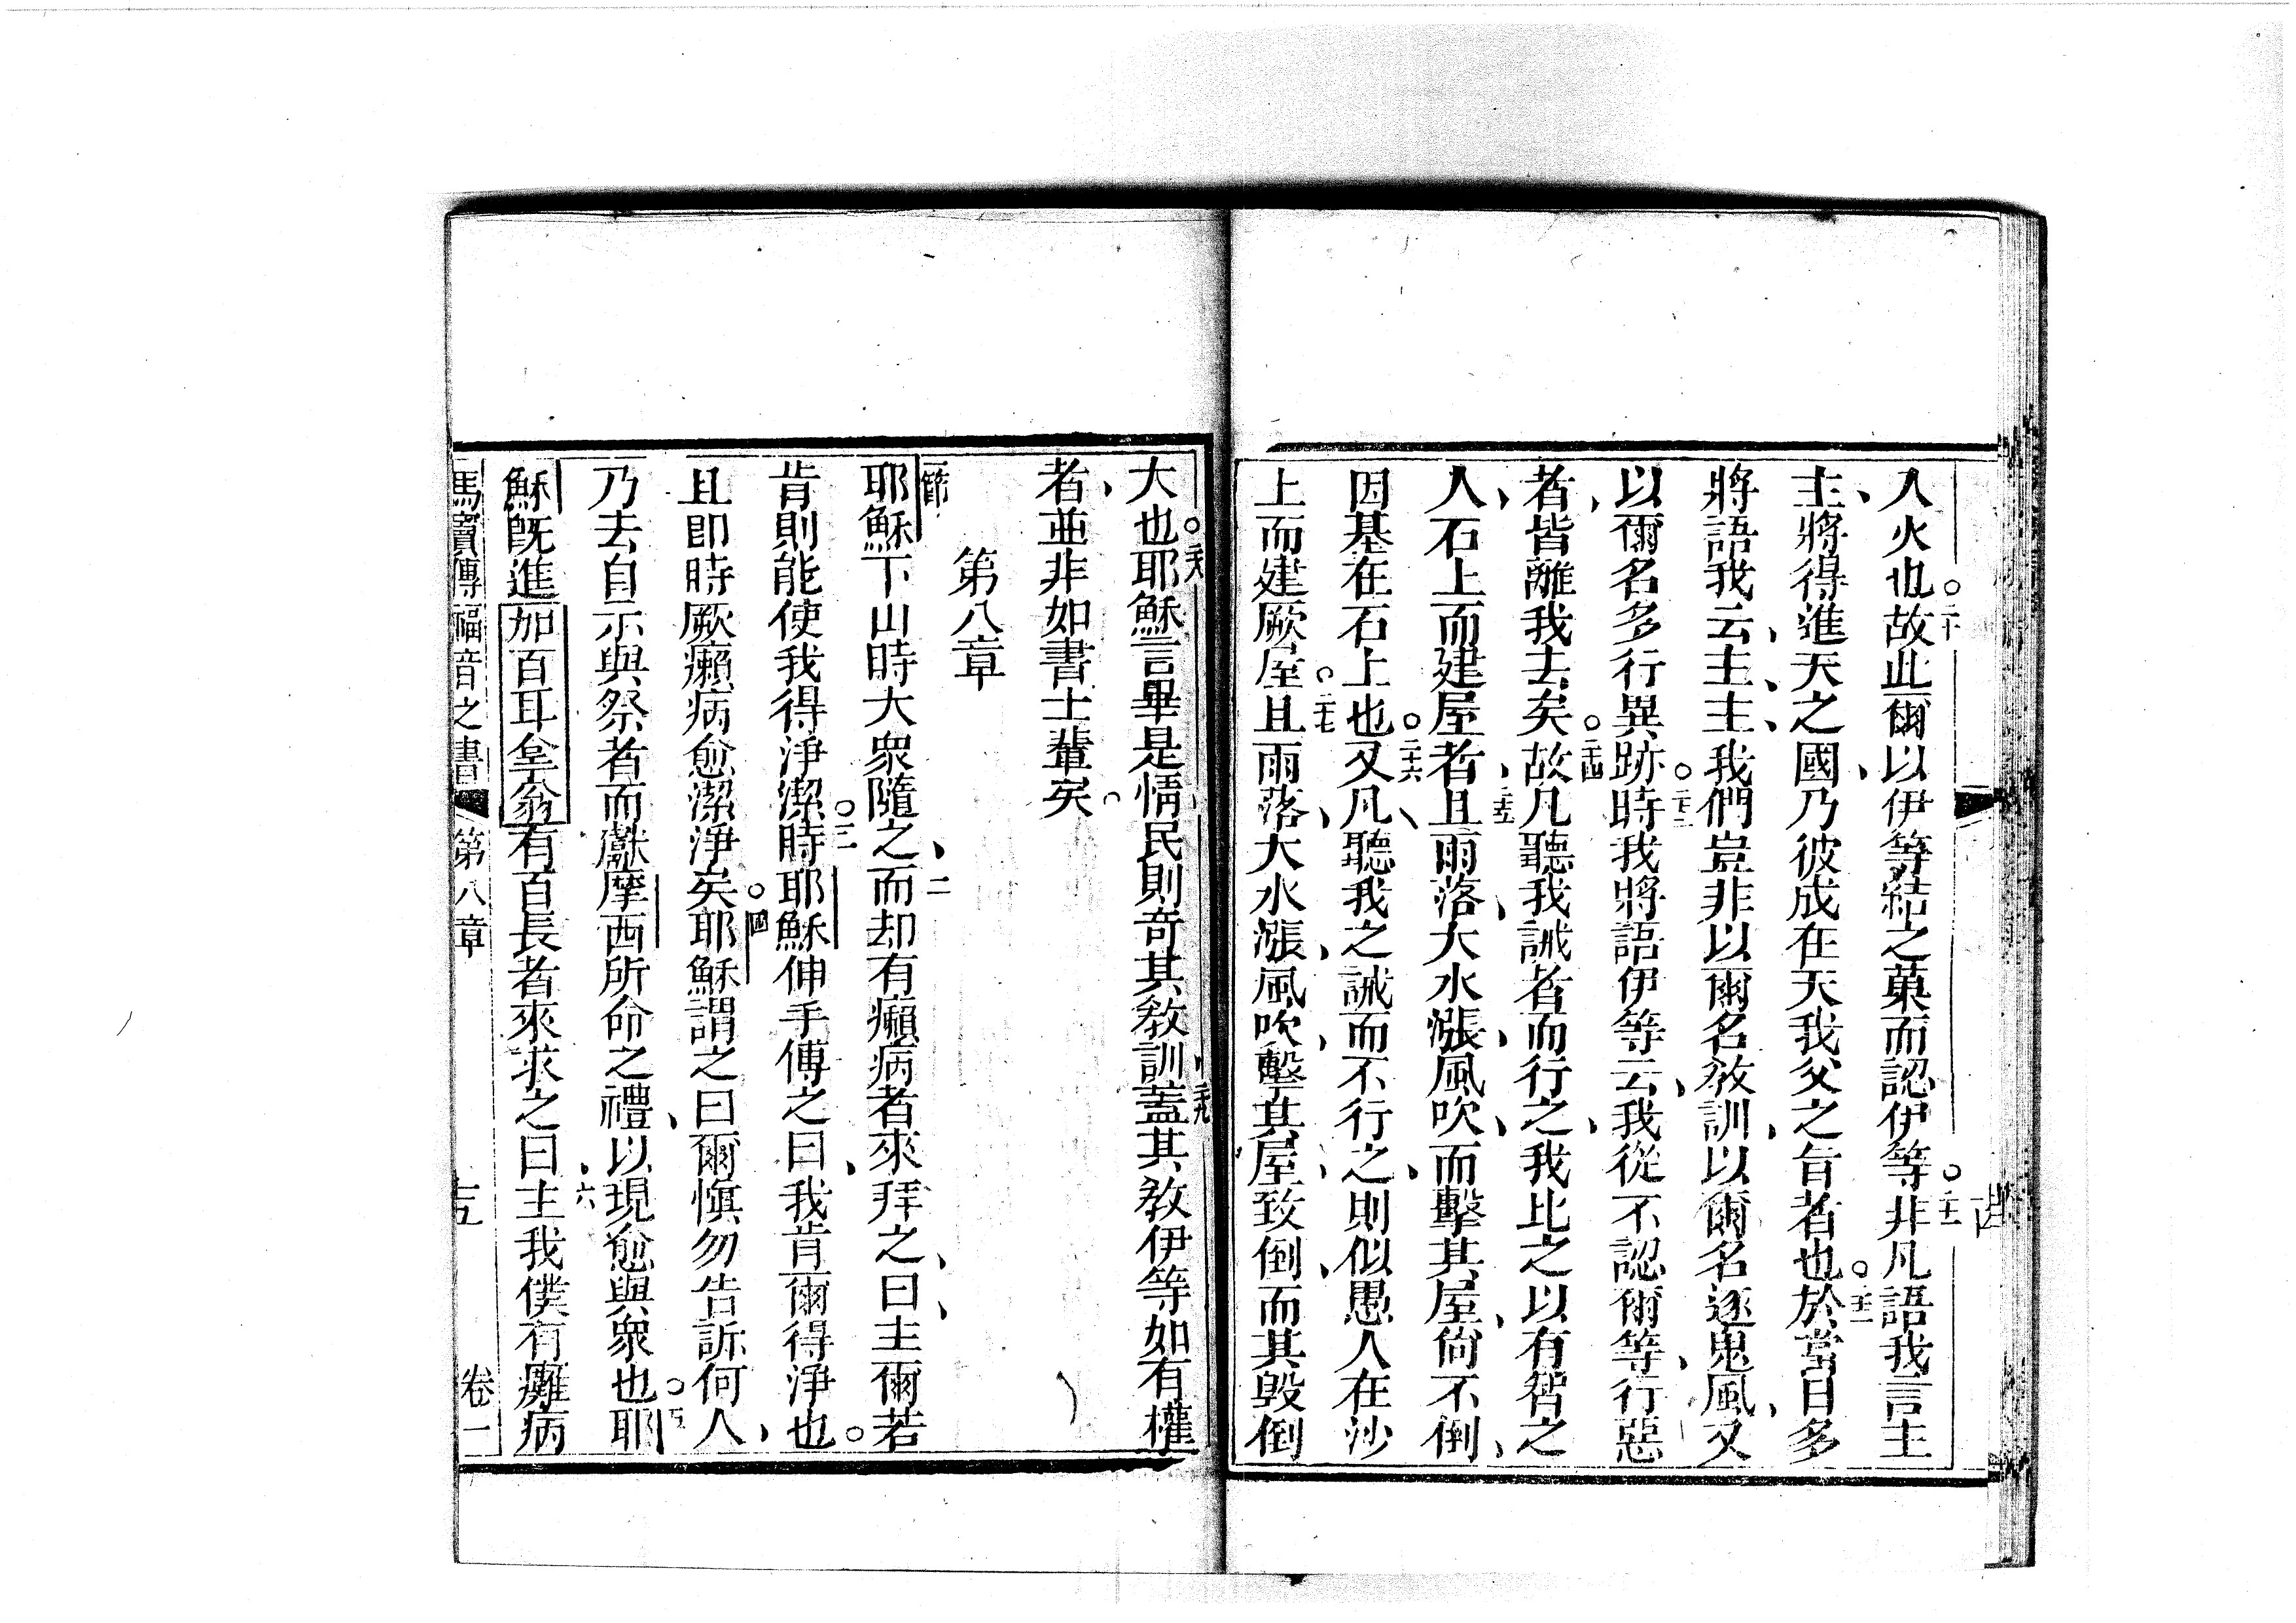 入火也。二十故此爾以伊等結之菓而認伊等。二十一非凡語我言主
主、將得進天之國、乃彼成在天我父之旨者也。二十二於當日多
將語我云、主、主、我們豈非以爾名敎訓、以爾名逐鬼風、又
以爾名多行異跡。二十三時我將語伊等云、我從不認爾等、行惡
者、皆離我去矣。二十四故凡聽我誡者而行之、我比之以有智之
人、石上而建屋者、二十五且雨落、大水漲、風吹、而擊其屋、尙不倒、
因基在石上也。二十六又凡聽我之誡而不行之、則似愚人在沙
上而建厥屋。二十七且雨落、大水漲、風吹、擊其屋、致倒、而其毀倒
大也。二十八耶穌言畢是情、民則奇其敎訓、二十九蓋其敎伊等如有權
者、並非如書士輩矣。
第八章
一節耶穌下山時大衆隨之、二而却有癩病者來拜之、曰、主爾若
肯則能使我得淨潔。三時耶穌伸手傅之曰、我肯爾得淨也。
且即時厥癩病愈潔淨矣。四耶穌謂之曰爾愼勿告訴何人、
乃去自示與祭者而獻摩西所命之禮、以現愈與衆也。五耶
穌旣進加百耳拿翁有百長者來求之曰、六主我僕有癱病
馬竇傳福音之書 第八章 十五 卷一